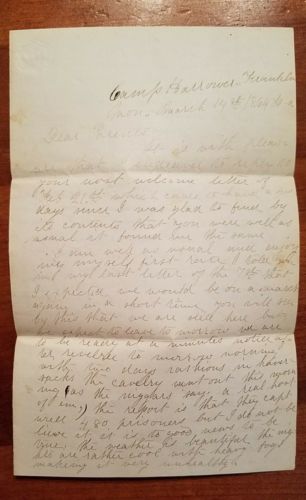 Camp Barrows Franklin
March 14th 1864
Dear Friend
It is with pleasure
that I endeavor to reply to
your most welcome letter of
Feb 21st which came to hand a few
days since I was glad to find by
its contents that you were well as
usual at former are the same
I am well as usual and enjoy
ing myself first rate. I
last letter of the 7th that
I expected we would be on a march
again in a short time you will see
by this that we are still here but
expect to leave to morrow we are
to be ready at a minutes notice
reveille to morrow morning
with five days rations in haver
sacks the cavelry went out this morn
ing (as the regulars say a real boot
of em,) the report is that they capt
ured 80 prisoners but I do not be
lieve it it is to good news to be
true the weather is beautiful the nig
hts are rather cool with heavy fogs
making it very unhealthy